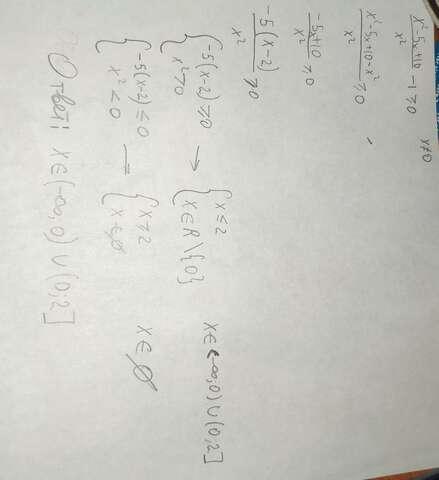 x²-5x+10 / x² - 1 ≥ 0 x≠0
x²-5x+10-x² / x² ≥ 0
-5x+10 / x² ≥ 0
-5(x-2) / x² ≥ 0
{ -5(x-2) ≥ 0 → { x ≤ 2 x∈(-∞;0)∪(0;2]
{ x² > 0 { x∈R\{0}
{ -5(x-2) ≤ 0 = { x ≥ 2 x∈∅
{ x² < 0 { x∈∅
Ответ: x∈(-∞,0)∪(0;2]